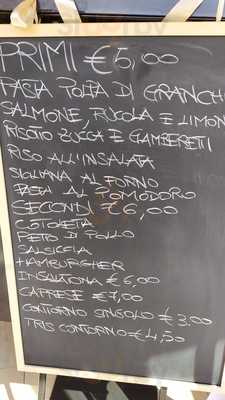 PRIMI €5,00
PASTA POLPA DI GRANCHI
SALMONE, RUCOLA E LIMON
RISOTTO ZUCCA E GAMBERETTI
RISO ALL'INSALATA
SICILIANA AL FORNO
AL POMODORO
SECONDI €6,00
COTOLETTA
PETTO DI POLLO
SALSICCIA
HAMBURGHER
INSALATONA €6,00
CAPRESE €7,00
CONTORNO SINGOLO €3,00
TRIS CONTORNO €4,50